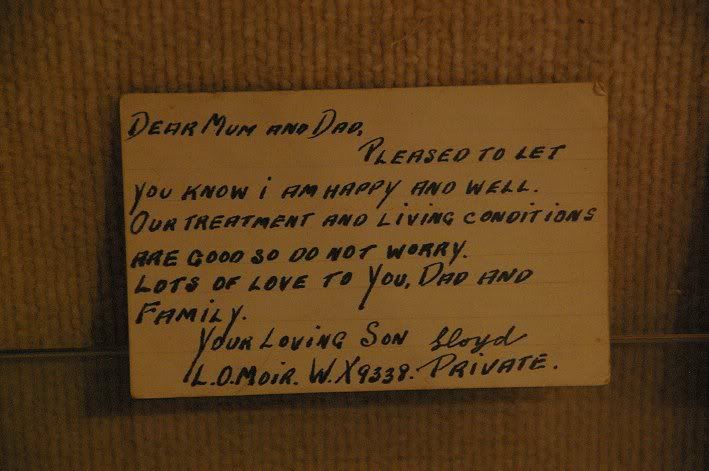 DEAR MUM AND DAD,
PLEASED TO LET
YOU KNOW i AM HAPPY AND WELL.
OUR TREATMENT AND LIVING CONDITIONS
ARE GOOD SO DO NOT WORRY.
LOTS OF LOVE TO YOU, DAD AND
FAMILY.
YOUR LOVING SON Lloyd
L.O.MOIR. W.X9338. PRIVATE.